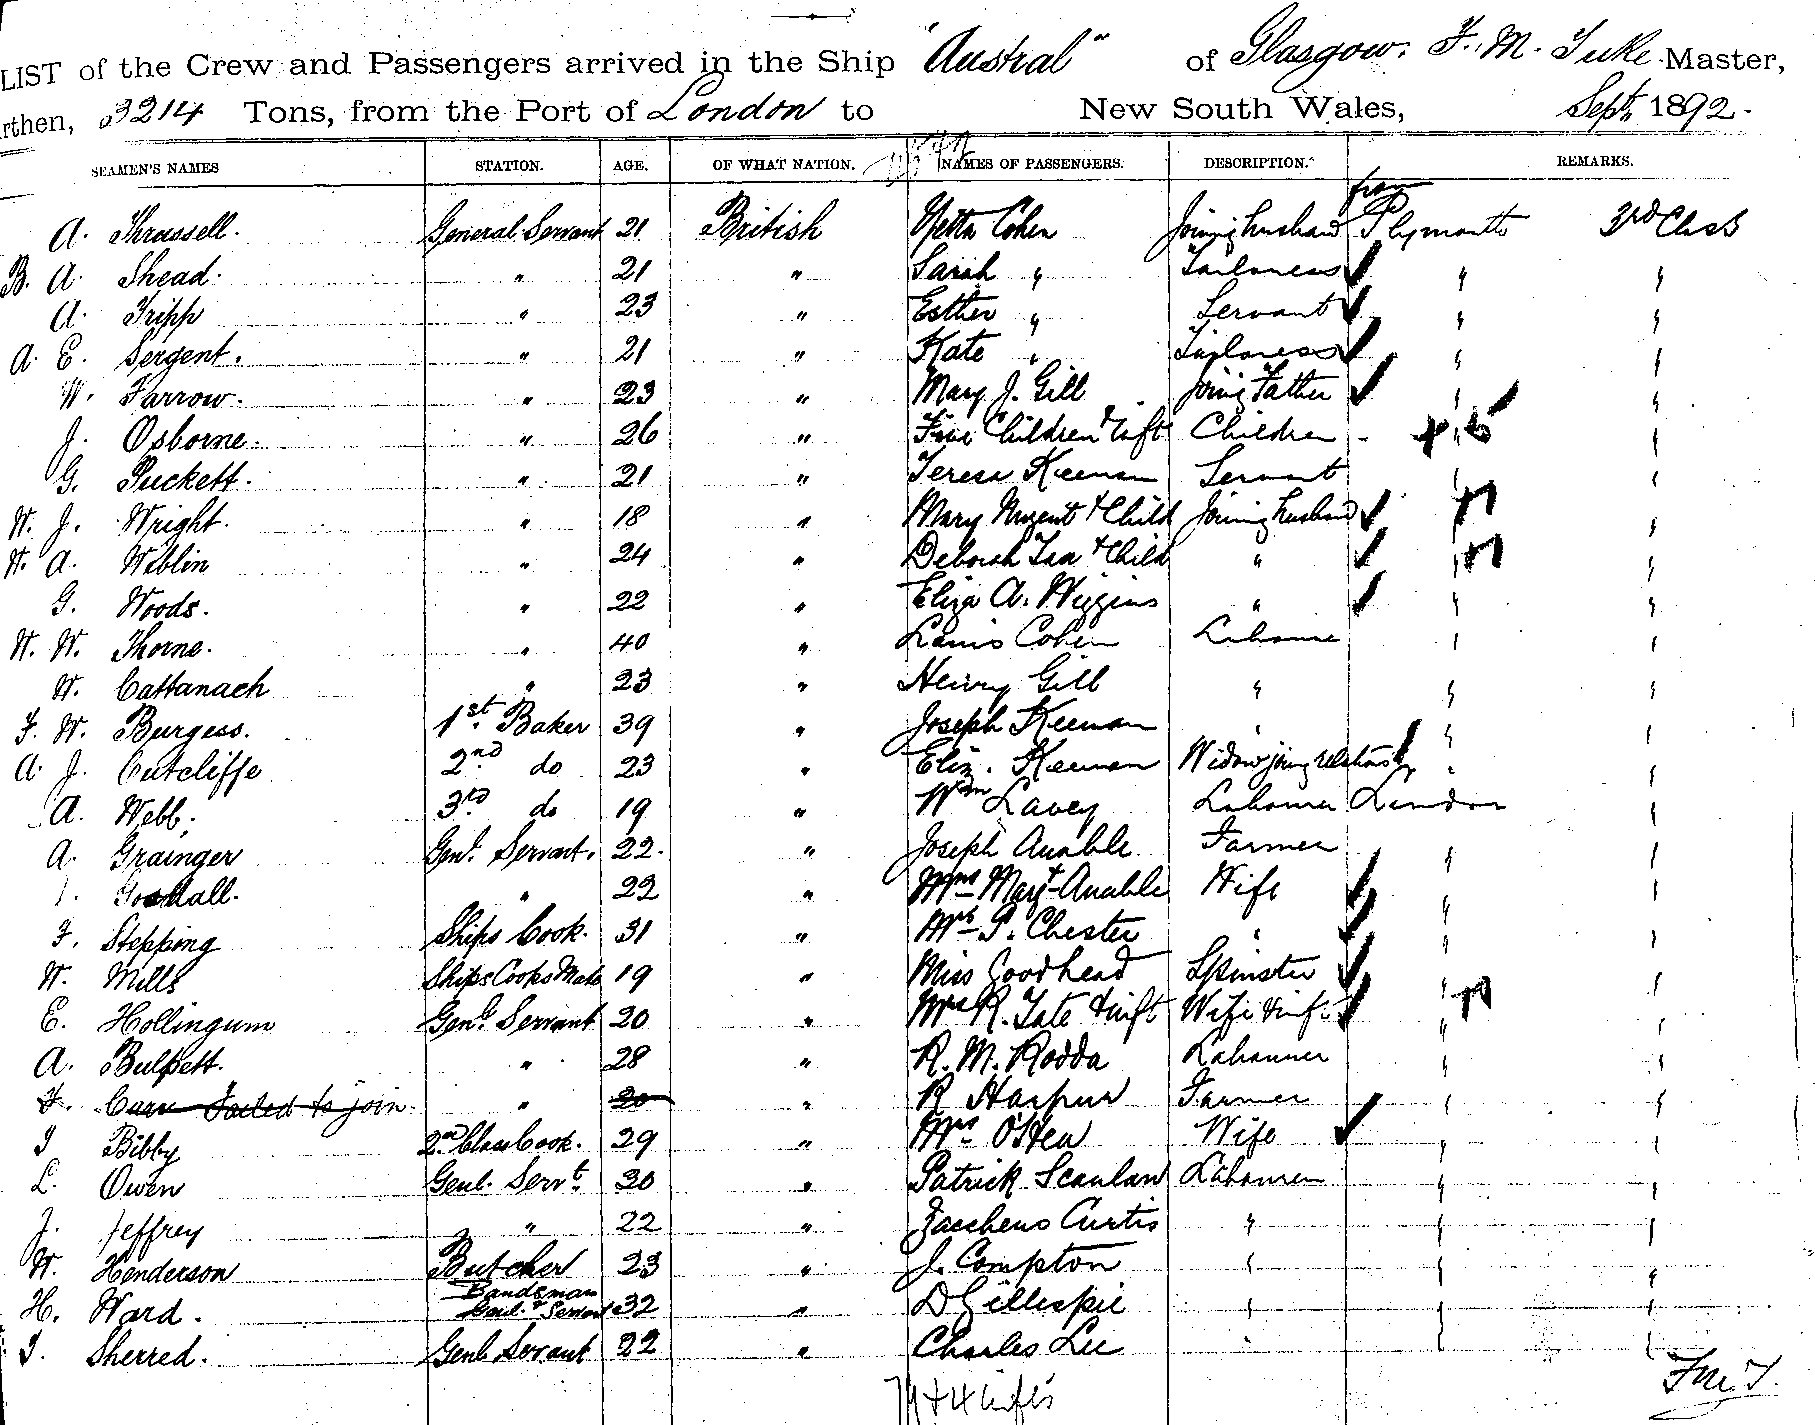 LIST of the Crew and Passengers arrived in the Ship "Austral" of Glasgow. F. M. Tuke Master,
rthen, 3214 Tons, from the Port of London to New South Wales, Sept. 1892.
SEAMEN'S NAMES STATION. AGE. OF WHAT NATION. NAMES OF PASSENGERS. DESCRIPTION. REMARKS.
from
A. Thrussell. General Servant 21 British Netta Cohen Joining husband Plymouth 3rd Class
B. A. Shead. " 21 " Sarah " Tailoress " "
A. Tripp " 23 " Esther " Servant " "
A. E. Sergent. " 21 " Kate " Tailoress " "
W. Farrow. " 23 " Mary J. Gill joing Father " "
J. Osborne. " 26 " Five Children & Inft Children " "
G. Puckett. " 21 " Teresa Keenan Servant " "
W. J. Wright. " 18 " Mary Nugent & Child Joining husband " "
W. A. Weblin " 24 " Deborah & Child " " "
G. Woods. " 22 " Eliza A. Wiggins " " "
W. W. Thorne. " 40 " Louis Cohen Labourer " "
W. Cattanach " 23 " Henry Gill " " "
F. W. Burgess. 1st. Baker 39 " Joseph Keenan " " "
A. J. Cutcliffe 2nd do 23 " Eliz. Keenan Widow joing relations " "
A. Webb. 3rd do 19 " Wm Lavey Labourer London "
A. Grainger Genl. Servant. 22. " Joseph Anable Farmer " "
Goodall. " 22 " Mrs Mary Anable Wife " "
F. Stepping Ships Cook. 31 " Mrs P. Chester " " "
W. Mills Ships Cooks Mate 19 " Miss Goodhead Spinster " "
E. Hollingum Genl. Servant 20 " Mrs R. Tate & inft Wife & inft " "
A. Bulpett. " 28 " R. M. Rodda Labourer " "
F. Carn Failed to join. " 20 " R Harpur Farmer " "
T Bibby 2nd Class Cook. 29 " Mrs O'Hea Wife " "
L. Owen Genl. Servt. 30 " Patrick Scanlan Labourer " "
J. Jeffrey " 22 " Zaccheus Curtis " " "
W. Henderson Butcher 23 " J. Compton " " "
H. Ward. Bandsman Genl. Servant 32 " D Gillespie " " "
T. Sherred. Genl Servant 22 " Charles Lee " " "
F.M.T.